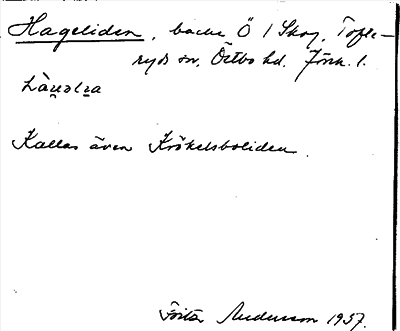 Hageliden, backe Ö / Skog, Tofte-
ryds sn, Östbo hd. Jönk. l.
Kallas även Krökelsboliden.
Andersson 1957.